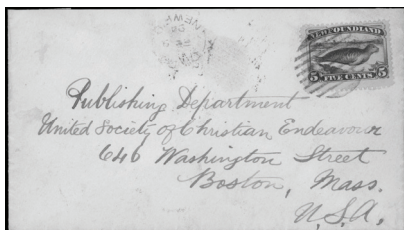 NEWFOUNDLAND
5 FIVE CENTS 5
Publishing Department
United Society of Christian Endeavour
646 Washington Street
Boston, Mass.
U.S.A.